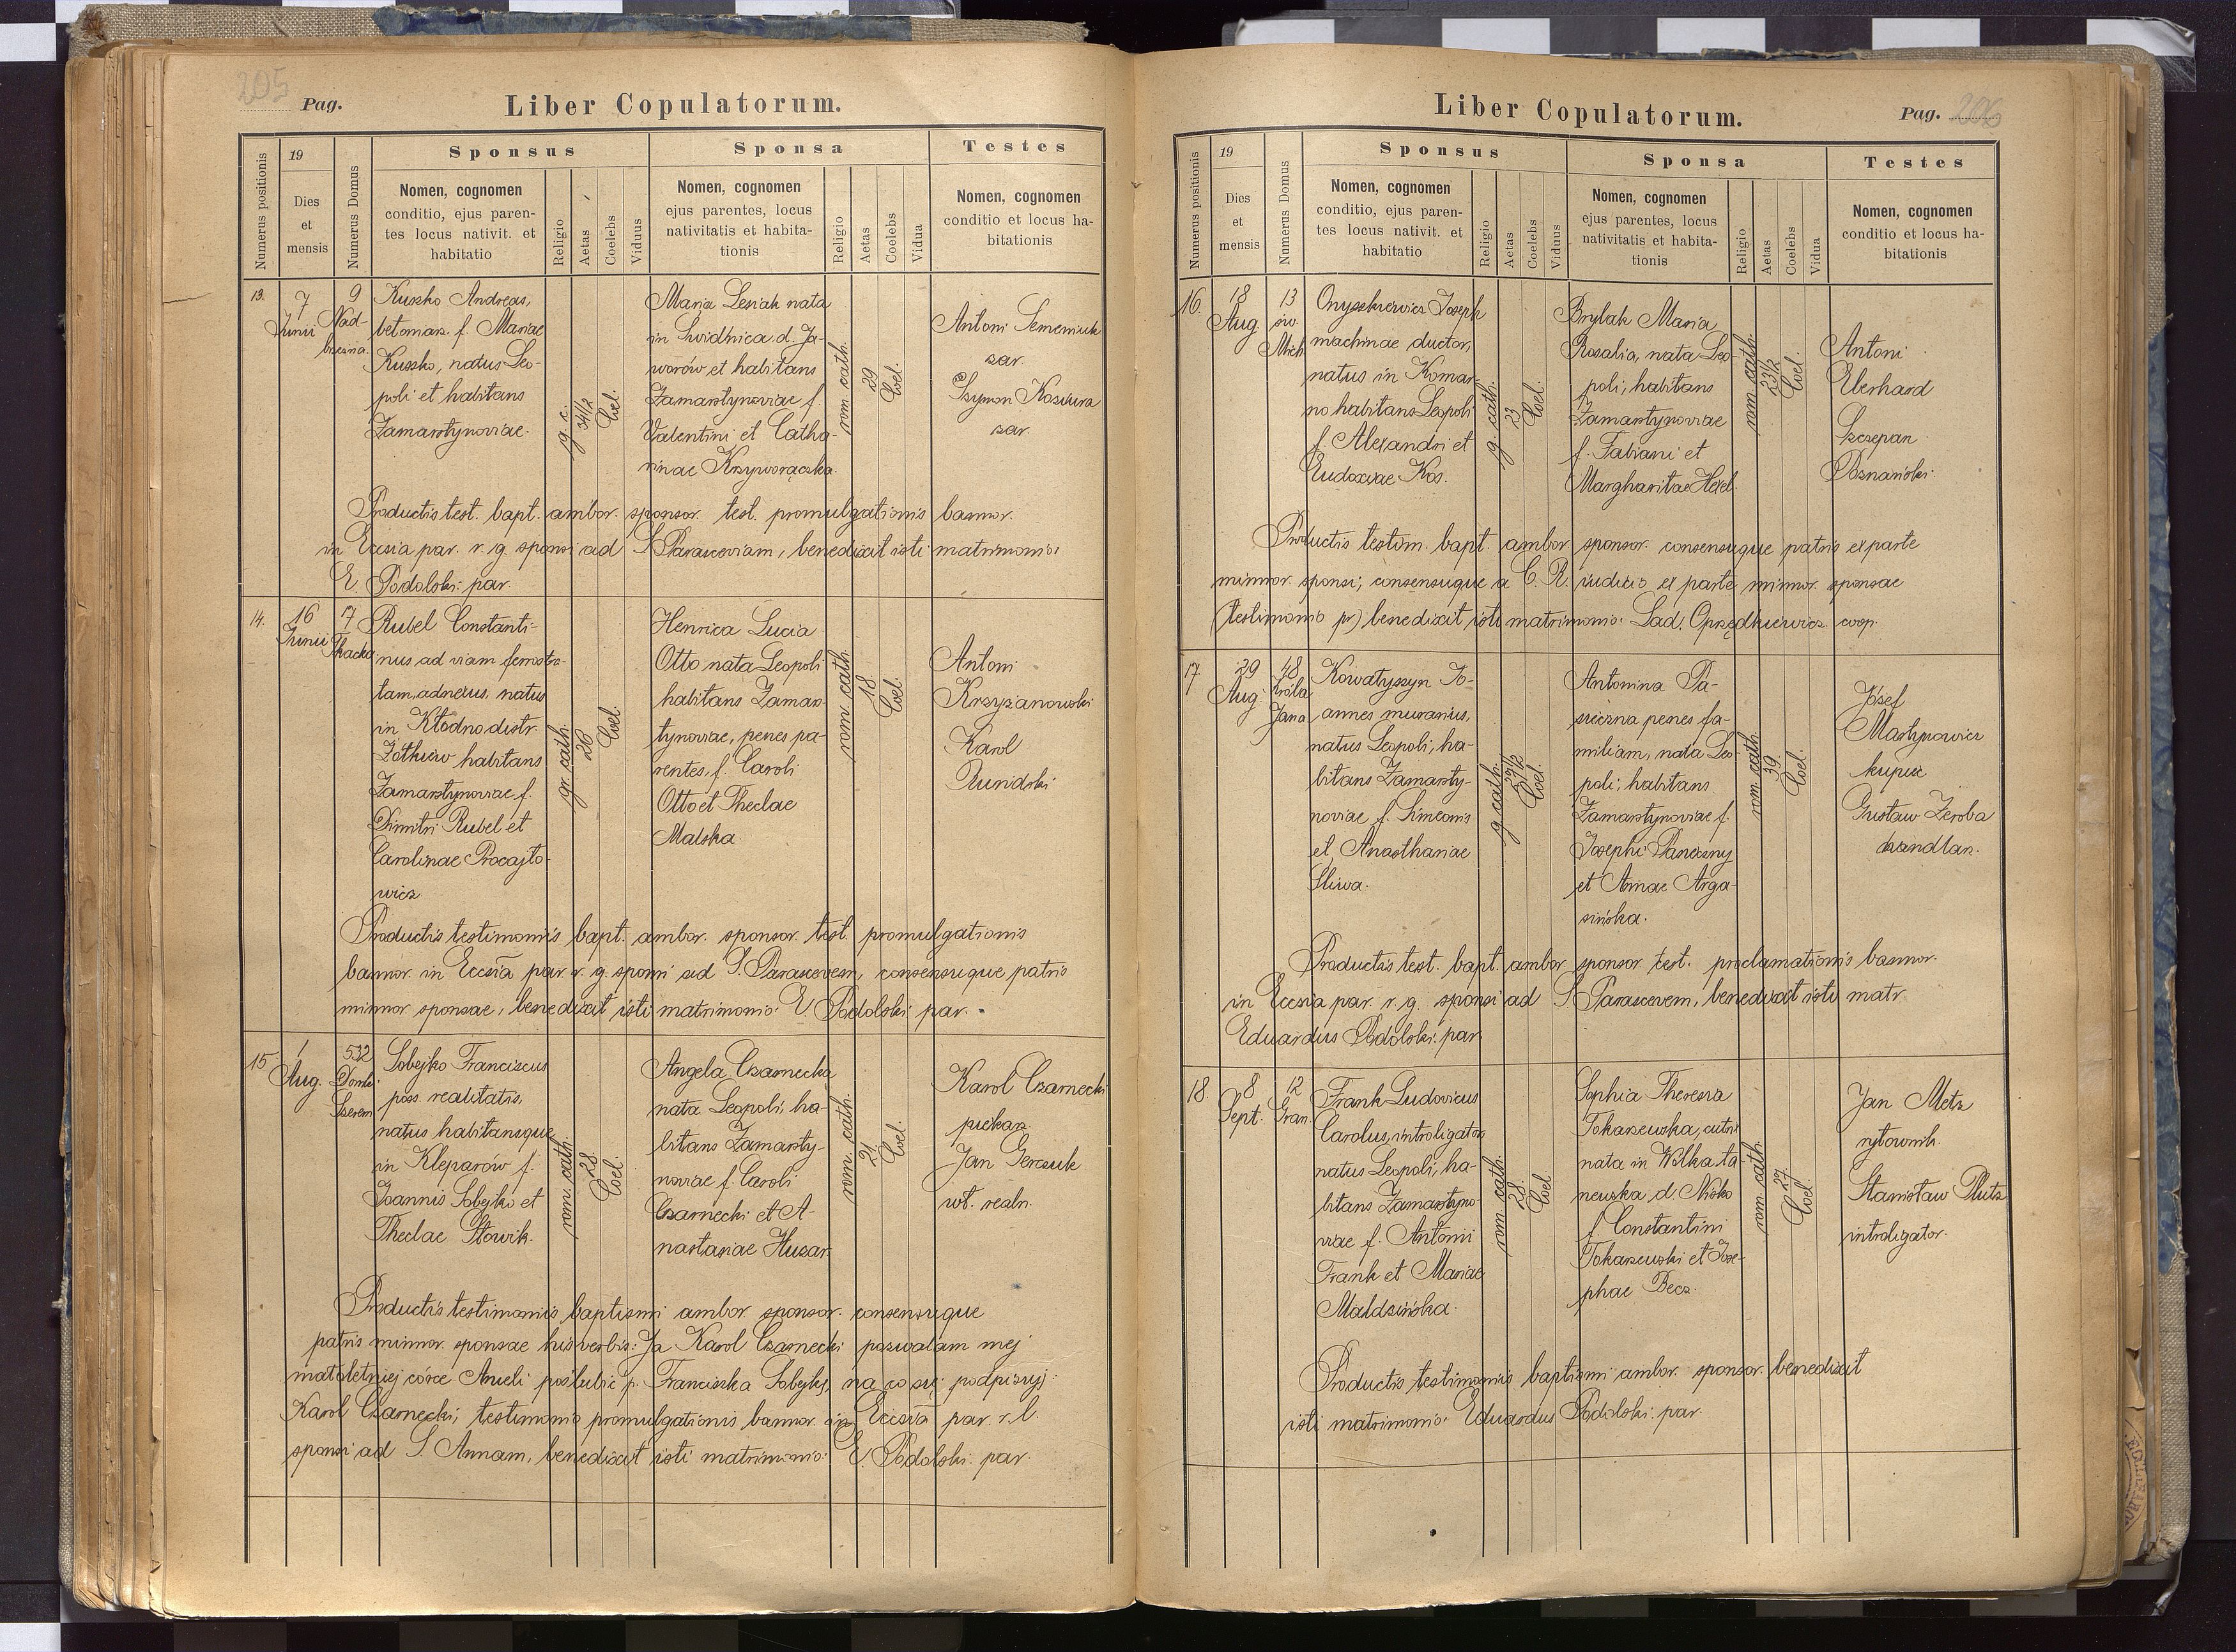 205 Pag.
Liber Copulatorum.
Numerus positionis
19
Dies
et
mensis
Numerus Domus
Sponsus
Nomen, cognomen
conditio, ejus paren-
tes locus nativit. et
habitatio
Religio
Aetas
Coelebs
Viduus
Sponsa
Nomen, cognomen
ejus parentes, locus
nativitatis et habita-
tionis
Religio
Aetas
Coelebs
Vidua
Testes
Nomen, cognomen
conditio et locus ha-
bitationis
13.
7
Junii
9
Nad-
brzeżna.
Kuszko Andreas,
betoniarz. f. Mariae
Kuszko, natus Leo-
poli et habitans
Zamarstynoviae.
g. c.
34 1/2
Coel.
Maria Lesiak nata
in Svidnica d. Ja-
worów et habitans
Zamarstynoviae f.
Valentini et Catha-
rinae Krzyworączka.
rom. cath.
29
Coel.
Antoni Semeniuk
zar.
Szymon Koszura
zar.
Productis test. bapt. ambor. sponsor. test. promulgationis bannor.
in Eccsia par. r. g. sponsi ad S. Parasceviam, benedixit isti matrimonio:
E. Podolski: par.
14.
16
Junii
17
Tkacka
Rubel Constanti-
nus ad viam ferrostra-
tam, adnexus. natus
in Kłodno distr.
Żółkiew habitans
Zamarstynoviae f.
Dimitri Rubel et
Carolinae Procajło-
wicz
gr. cath.
26
Coel
Henrica Lucia
Otto nata Leopoli
habitans Zamar-
tynoviae, penes pa-
rentes, f. Caroli
Otto et Theclae
Malska.
rom. cath.
18
Coel.
Antoni
Krzyżanowski
Karol
Runidski
Productis testimoniis bapt. ambor. sponsor. test. promulgationis
bannor. in Eccsia par. r. g. sponsi ad S. Parascevem, consensuque patris
minnor. sponsae, benedixit isti matrimonio: E. Podolski par.
15
1
Aug.
532
Sobejko Franciscus
poss. realitatis,
natus habitansque
in Kleparów f.
Joannis Sobejko et
Theclae Słowik.
rom. cath.
28
Coel.
Angela Czarnecka
nata Leopoli, ha-
bitans Zamarsty-
noviae f. Caroli
Czarnecki et A-
nastasiae Huzar.
rom. cath.
21
Coel.
Karol Czarnecki
piekarz
Jan Gerczuk
wł. realn.
Productis testimoniis baptismi ambor. sponsor. consensuque
patris minnor. sponsae his verbis: Ja Karol Czarnecki pozwalam mej
małoletniej córce Anieli poślubić p. Franciszka Sobejkę, na co się podpisuję:
Karol Czarnecki; testimonio promulgationis bannor. in Eccsia par. r. l.
sponsi ad S. Annam, benedixit isti matrimonio: E. Podolski: par.
Liber Copulatorum.
Pag. 206
Numerus positionis
19
Dies
et
mensis
Numerus Domus
Sponsus
Nomen, cognomen
conditio, ejus paren-
tes locus nativit. et
habitatio
Religio
Aetas
Coelebs
Viduus
Sponsa
Nomen, cognomen
ejus parentes, locus
nativitatis et habita-
tionis
Religio
Aetas
Coelebs
Vidua
Testes
Nomen, cognomen
conditio et locus ha-
bitationis
16.
18
Aug.
13
św.
Mich
Onyszkiewicz Joseph
machinae ductor,
natus in Komar-
no habitans Leopoli
f. Alexandri et
Eudoxiae Kos.
g. cath.
23
Coel.
Brylak Maria
Rosalia, nata Leo-
poli, habitans
Zamarstynoviae
f. Fabiani et
Margharitae Hexel.
rom. cath.
23 1/2
Coel.
Antoni
Eberhard
Szczepan
Poznański.
Productis testim. bapt. ambor. sponsor. consensuque patris ex parte
minnor. sponsi; consensuque a C. R. iudicio ex parte minnor. sponsae
(testimonio pr.) benedixit isti matrimonio: Lad. Oprzędkiewicz coop.
17
29
Aug.
48
Króla
Jana
Kowałyszyn Jo-
annes murarius,
natus Leopoli, ha-
bitans Zamarsty-
noviae f. Simeonis
et Anasthasiae
Śliwa.
g. cath.
Coel.
Antonina Pa-
sieczna penes fa-
miliam, nata Leo-
poli, habitans
Zamarstynoviae f.
Josephi Pasieczny
et Annae Arga-
sińska.
rom. cath.
39
Coel.
Józef
Martynowicz
kupiec
Gustaw Zeroba
handlarz.
Productis test. bapt. ambor. sponsor. test. proclamationis bannor.
in Eccsia par. r. g. sponsi ad S. Parascevem, benedixit isti matr.
Eduardus Podolski: par.
18.
8
Sept.
12
Gran.
Frank Ludovicus
Carolus, introligator
natus Leopoli, ha-
bitans Zamarstyno-
viae f. Antonii
Frank et Mariae
Maldzińska.
rom. cath.
28
Coel
Sophia Theresia
Tokarzewska,
nata in Wólka ta-
newska d. Nisko
f. Constantini
Tokarzewski et Jose-
phae Becz.
rom. cath.
27
Coel.
Jan Metz
rytownik.
Stanisław Plutz
introligator.
Productis testimoniis baptismi ambor. sponsor. benedixit
isti matrimonio: Eduardus Podolski: par.